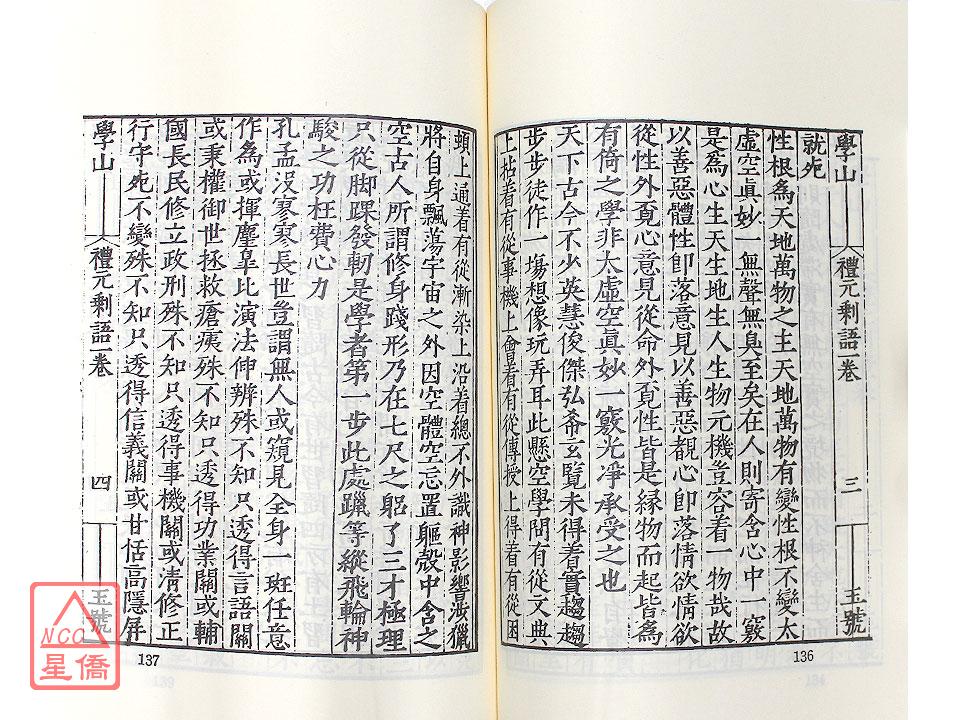 學山
禮元剩語一卷
三
玉號
就死
性根為天地萬物之主天地萬物有變性根不變太
虛空真妙一無聲無臭至矣在人則寄含心中一竅
是為心生天生地生人生物元機豈容着一物哉故
以善惡體性即落意見以善惡觀心即落情欲情欲
從性外覓心意見從命外覓性皆是緣物而起皆為
有倚之學非太虛空真妙一竅光淨承受之也
天下古今不少英慧俊傑弘希玄覽未得着實趨趨
步步徒作一場想像玩弄耳此懸空學問有從文典
上粘着有從事機上會着有從傳授上得着有從困
頓上通着有從漸染上沿着總不外識神影響涉獵
將自身飄蕩宇宙之外因空體空忘置軀殼中含之
空古人所謂修身踐形乃在七尺之躬了三才極理
只從脚踝發軔是學者第一步此處躐等縱飛輪神
駿之功枉費心力
孔孟沒寥寥長世豈謂無人或窺見全身一班任意
作為或揮麈臯比演法伸辨殊不知只透得言語關
或秉權御世拯救瘡痍殊不知只透得功業關或輔
國長民修立政刑殊不知只透得事機關或清修正
行守死不變殊不知只透得信義關或甘恬高隱屏
學山
禮元剩語一卷
四
玉號
136
137
NCC
星僑